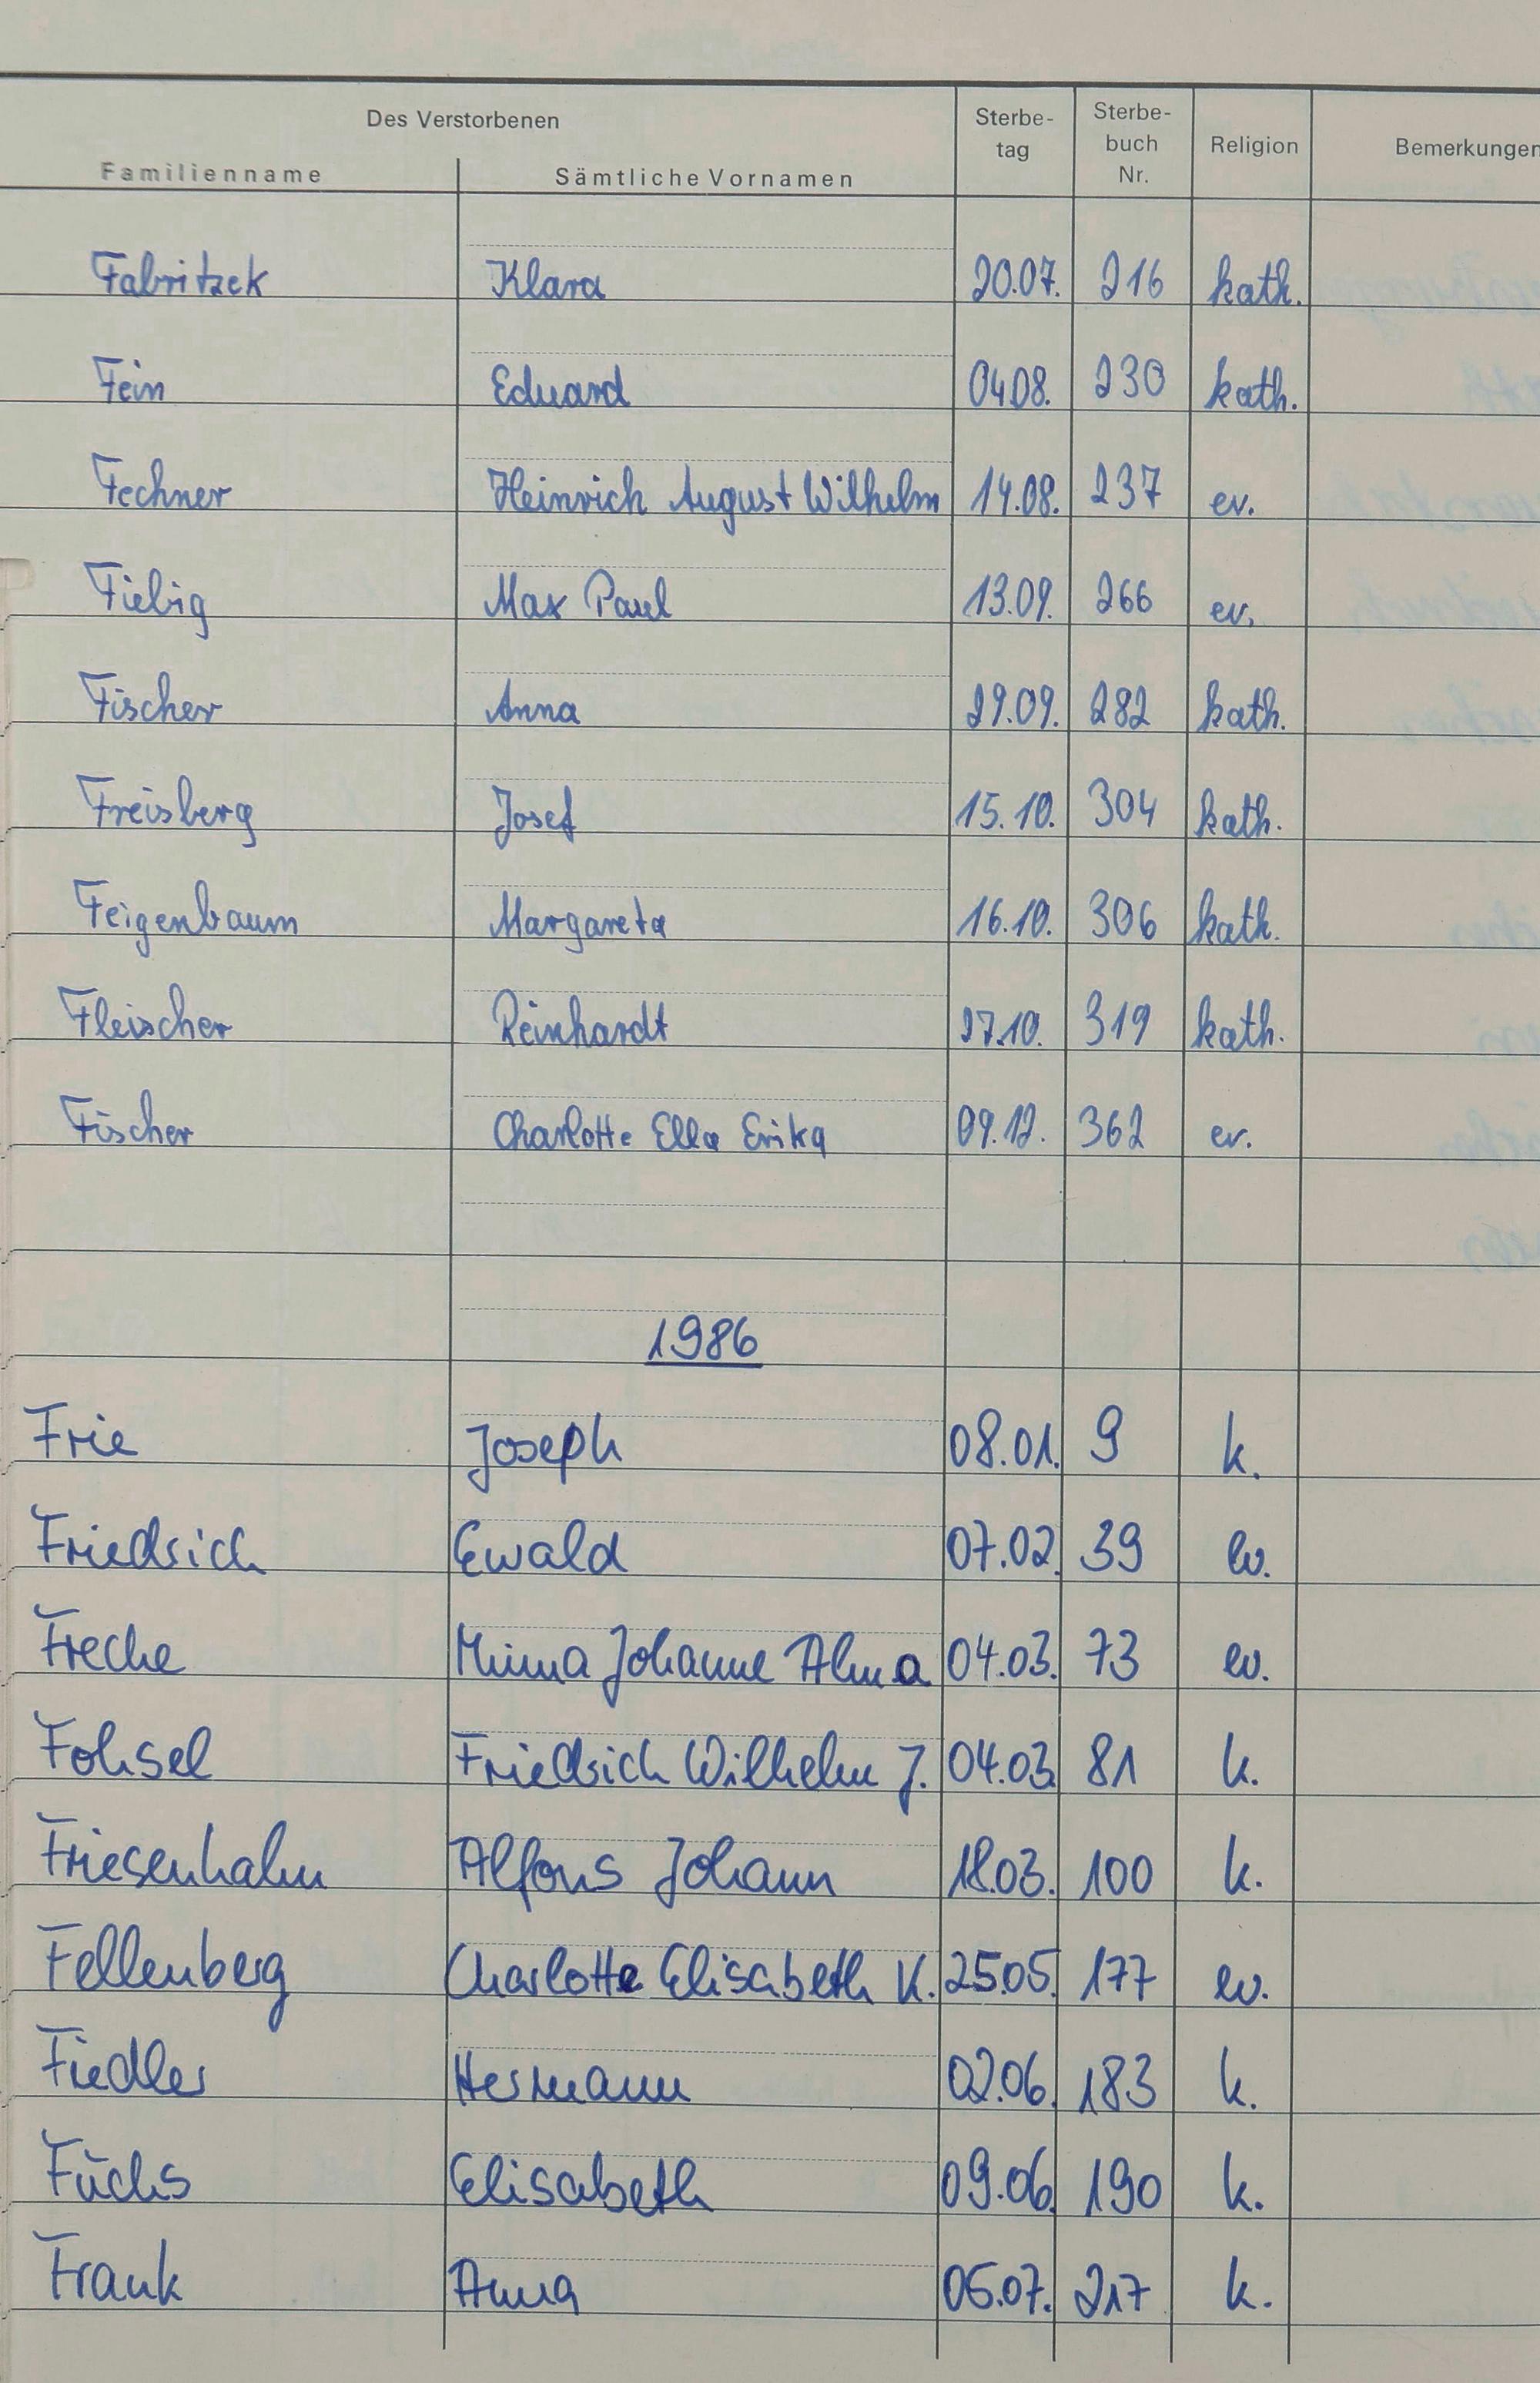 Des Verstorbenen
Familienname Sämtliche Vornamen Sterbe-tag Sterbe-buch Nr. Religion Bemerkungen
Fabritzek Klara 20.07. 216 kath.
Fein Eduard 04.08. 230 kath.
Fechner Heinrich August Wilhelm 14.08. 237 ev.
Fiebig Max Paul 13.09. 266 ev.
Fischer Anna 29.09. 282 kath.
Freisberg Josef 15.10. 304 kath.
Feigenbaum Margareta 16.10. 306 kath.
Fleischer Reinhardt 27.10. 319 kath.
Fischer Charlotte Ella Erika 09.12. 362 ev.
1986
Frie Joseph 08.01. 9 k.
Friedrich Ewald 07.02. 39 ev.
Freche Minna Johanne Alma 04.03. 73 ev.
Fohsel Friedrich Wilhelm J. 04.03. 81 k.
Friesenhahn Alfons Johann 18.03. 100 k.
Fellenberg Charlotte Elisabeth K. 25.05. 177 ev.
Fiedler Hermann 02.06. 183 k.
Fuchs Elisabeth 09.06. 190 k.
Frank Anna 217 k.